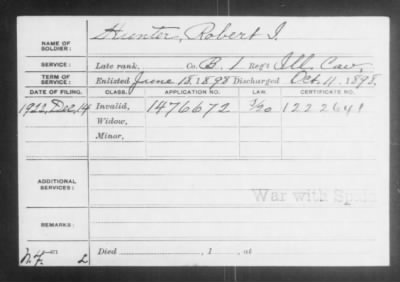 Hunter, Robert I.
NAME OF SOLDIER:
SERVICE: Late rank, Co. B. 1 Reg't Ill. Cav.
TERM OF SERVICE: Enlisted June 18. 1898 Discharged Oct. 11. 1898.
DATE OF FILING. CLASS. APPLICATION NO. LAW. CERTIFICATE NO.
1922, Dec. 14 Invalid, 1476672 1222641
Widow,
Minor,
ADDITIONAL SERVICES:
War with Spain
REMARKS:
Died , 1 , at